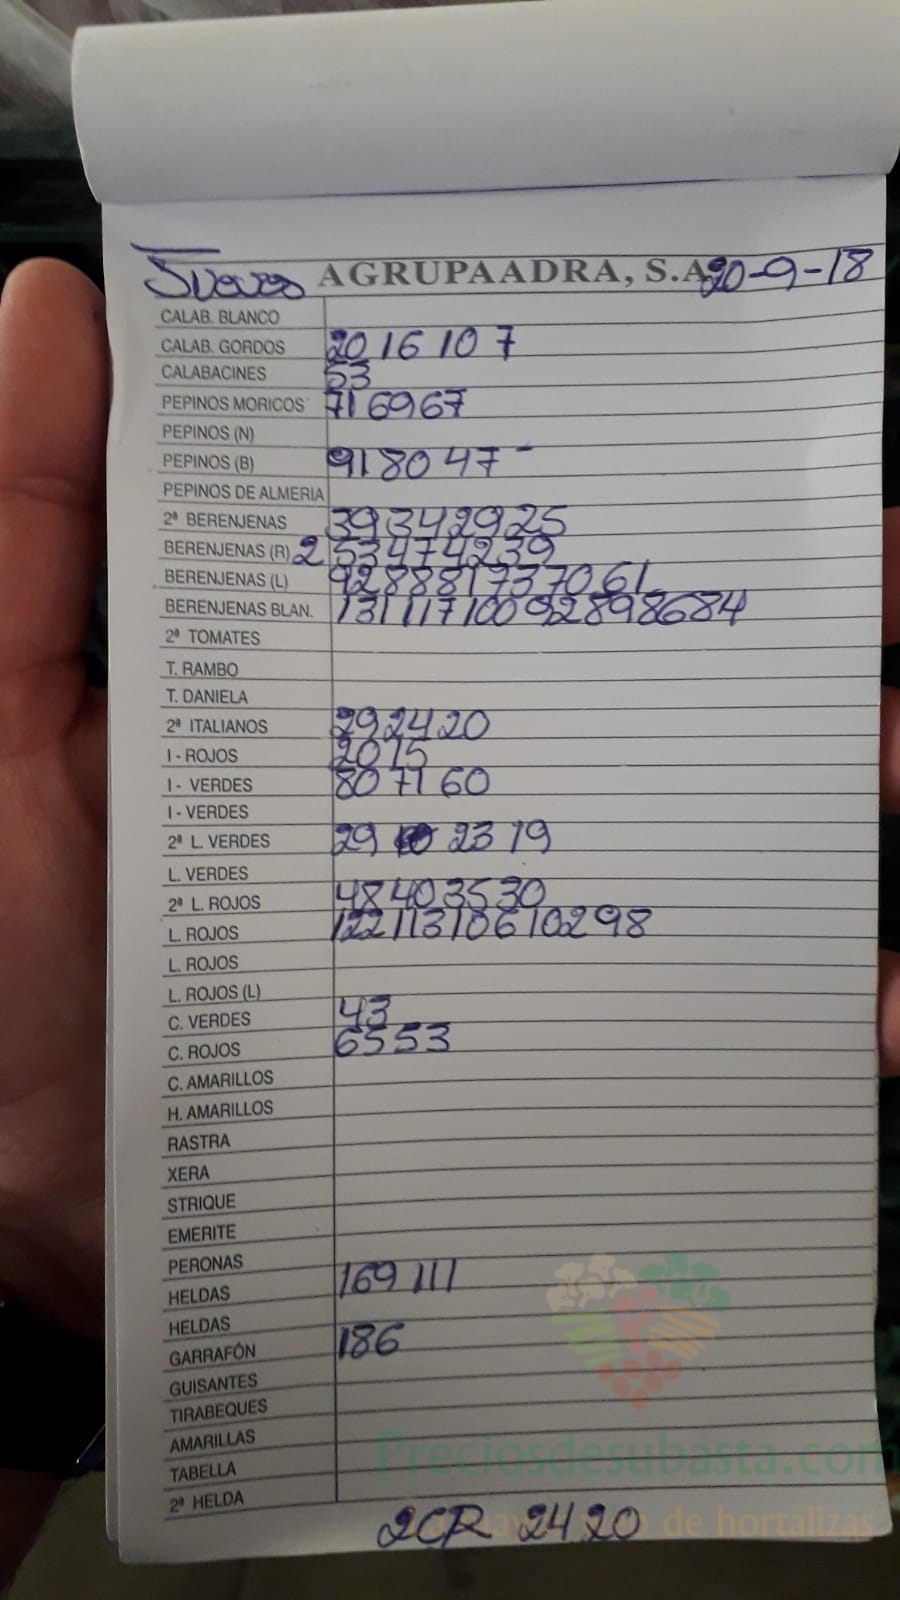 Jueves AGRUPAADRA, S.A. 20-9-18
CALAB. BLANCO
CALAB. GORDOS 20 16 10 7
CALABACINES 53
PEPINOS MORICOS 71 69 67
PEPINOS (N)
PEPINOS (B) 91 80 47 -
PEPINOS DE ALMERIA
2ª BERENJENAS 39 34 29 25
BERENJENAS (R) 2 53 47 42 39
BERENJENAS (L) 92 88 81 73 70 61
BERENJENAS BLAN. 131 117 100 92 89 86 84
2ª TOMATES
T. RAMBO
T. DANIELA
2ª ITALIANOS 29 24 20
I - ROJOS 20 15
I - VERDES 80 71 60
I - VERDES
2ª L. VERDES 29 23 19
L. VERDES
2ª L. ROJOS 48 40 35 30
L. ROJOS 122 113 106 102 98
L. ROJOS
L. ROJOS (L)
C. VERDES 43
C. ROJOS 65 53
C. AMARILLOS
H. AMARILLOS
RASTRA
XERA
STRIQUE
EMERITE
PERONAS
HELDAS 169 111
HELDAS
GARRAFÓN 186
GUISANTES
TIRABEQUES
AMARILLAS
TABELLA
2ª HELDA
Preciosdesubasta.com
2CR 24 20
de hortalizas